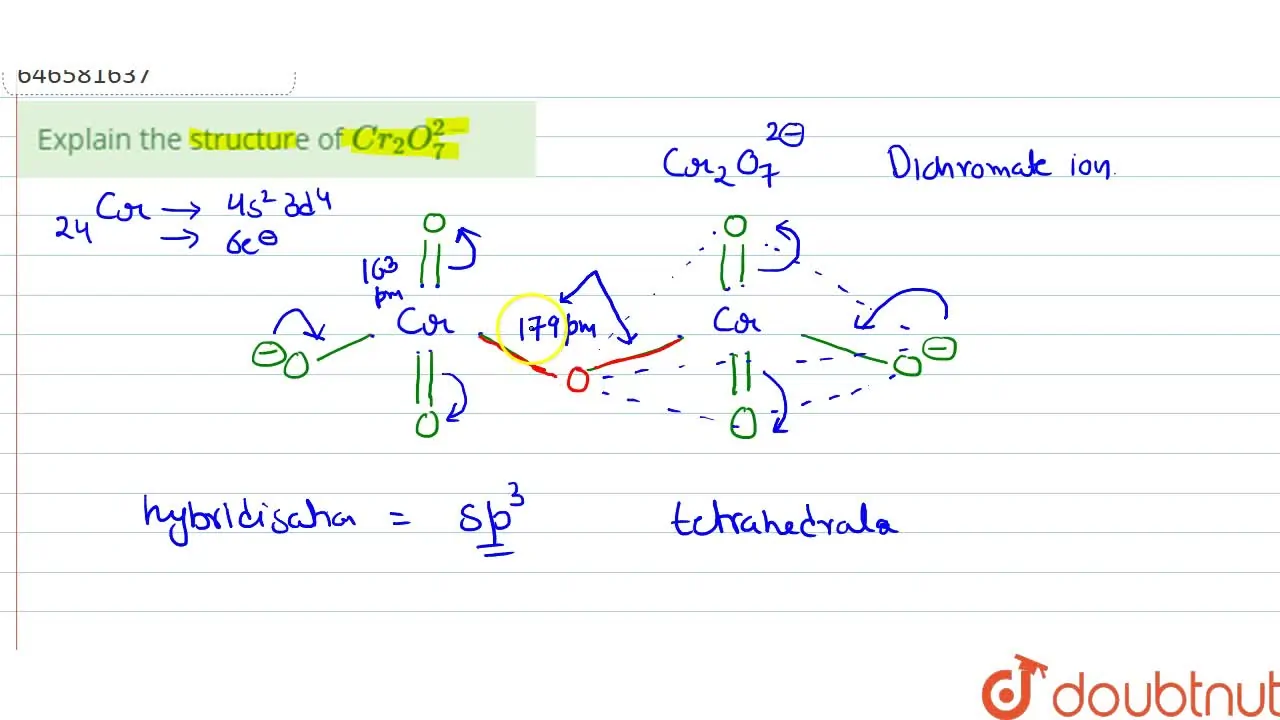 646581637
Explain the structure of Cr₂O₇²⁻
Cr₂O₇ 2⊖ Dichromate ion.
₂₄Cr → 4s² 3d⁴
→ 6e⊖
O O
163
pm
Cr 179 pm Cr
⊖O O O⊖
O O
hybridisation = sp³ tetrahedral
doubtnut